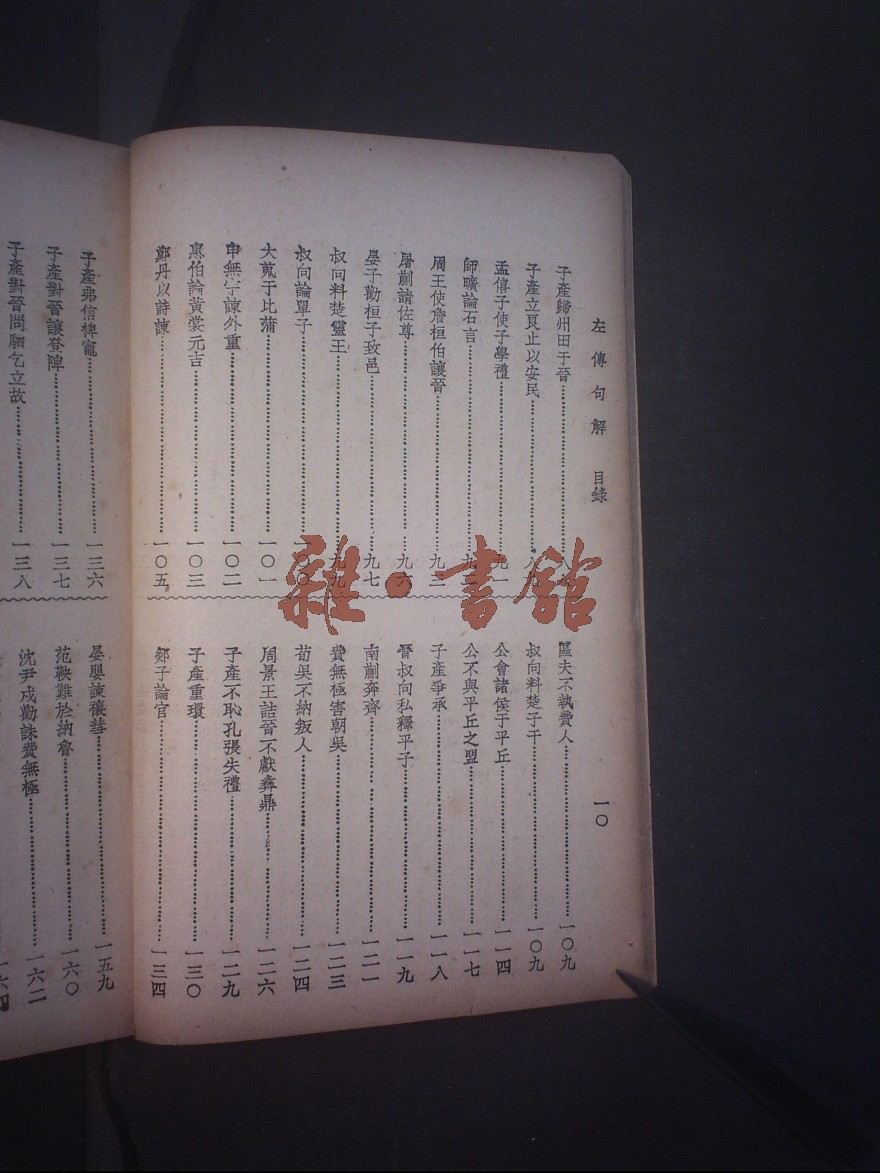 左傳句解 目錄
一〇
子產歸州田于晉
子產立良止以安民
孟僖子使子學禮
師曠論石言
周王使詹桓伯讓晉 九三
屠蒯請佐尊 九六
晏子勸桓子致邑 九七
叔向料楚靈王 九九
叔向論單子 一〇〇
大蒐于比蒲 一〇一
申無宇諫外重 一〇二
惠伯論黃裳元吉 一〇三
鄭丹以詩諫 一〇五
區夫不執費人 一〇九
叔向料楚子干 一〇九
公會諸侯于平丘 一一四
公不與平丘之盟 一一七
子產爭承 一一八
晉叔向私釋平子 一一九
南蒯奔齊 一二一
費無極害朝吳 一二三
荀吳不納叛人 一二四
周景王詰晉不獻彝鼎 一二六
子產不恥孔張失禮 一二九
子產重環 一三〇
郯子論官 一三四
子產弗信裨竈 一三六
子產對晉讓登陴 一三七
子產對晉問駟乞立故 一三八
晏嬰諫禳彗 一五九
范鞅難於納魯 一六〇
沈尹戍勸誅費無極 一六二
一六四
雜·書館